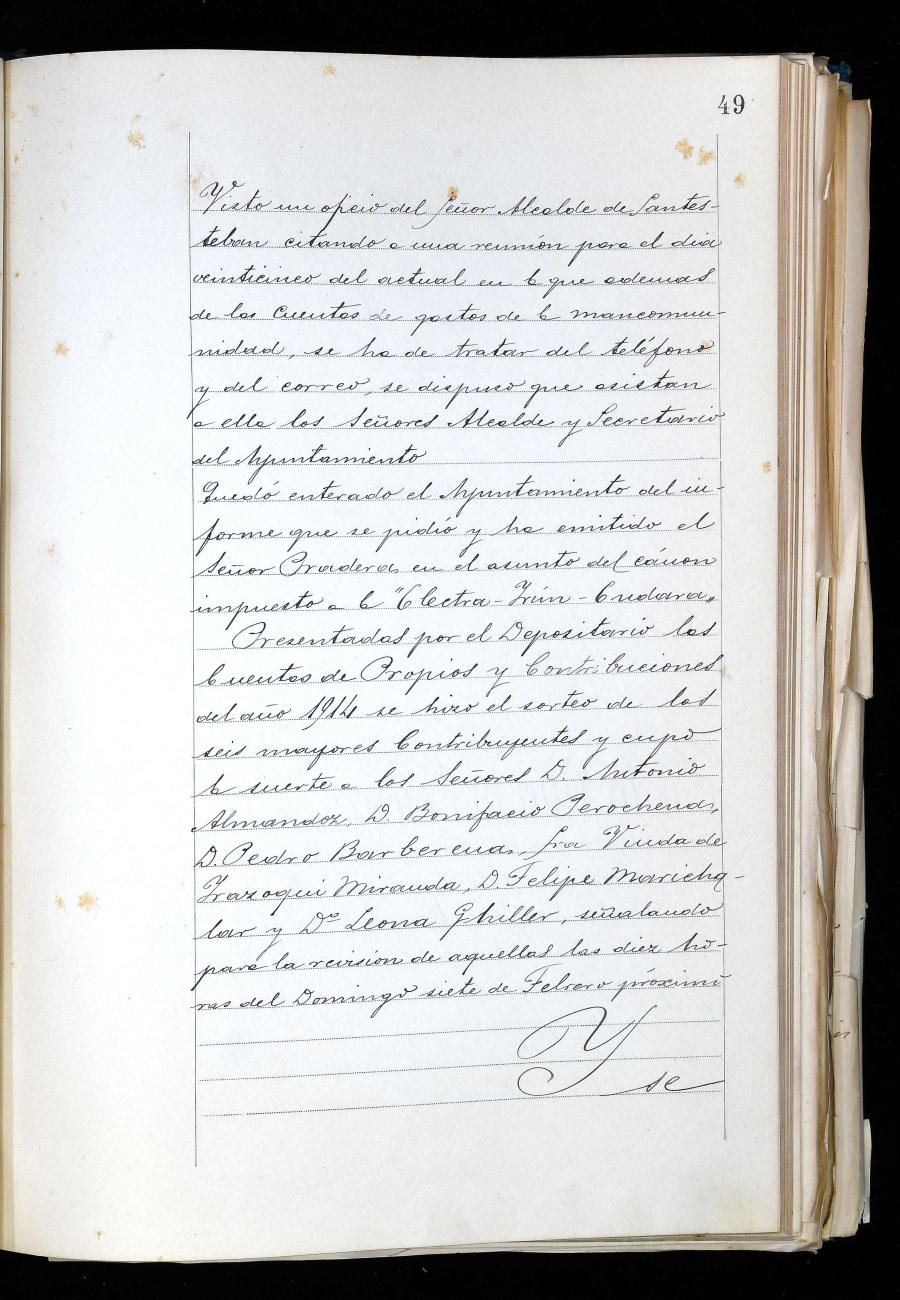 49
Visto un oficio del Señor Alcalde de Santes-
teban citando a una reunión para el dia
veinticinco del actual en la que ademas
de las cuentas de gastos de la mancomu-
nidad, se ha de tratar del teléfono
y del correo, se dispuso que asistan
a ella los Señores Alcalde y Secretario
del Ayuntamiento
Quedó enterado el Ayuntamiento del in-
forme que se pidió y ha emitido el
Señor Pradera, en el asunto del cánon
impuesto a la "Electra-Irún-Endara„
Presentadas por el Depositario las
Cuentas de Propios y Contribuciones
del año 1914 se hizo el sorteo de los
seis mayores Contribuyentes y cupo
la suerte a los Señores D. Antonio
Almandoz, D. Bonifacio Perochena,
D. Pedro Barberena, Sra Viuda de
Irazoqui Miranda, D. Felipe Maricha-
lar y Dª Leona Ghiller, señalando
para la revision de aquellas las diez ho-
ras del Domingo siete de Febrero próximo
Y
se